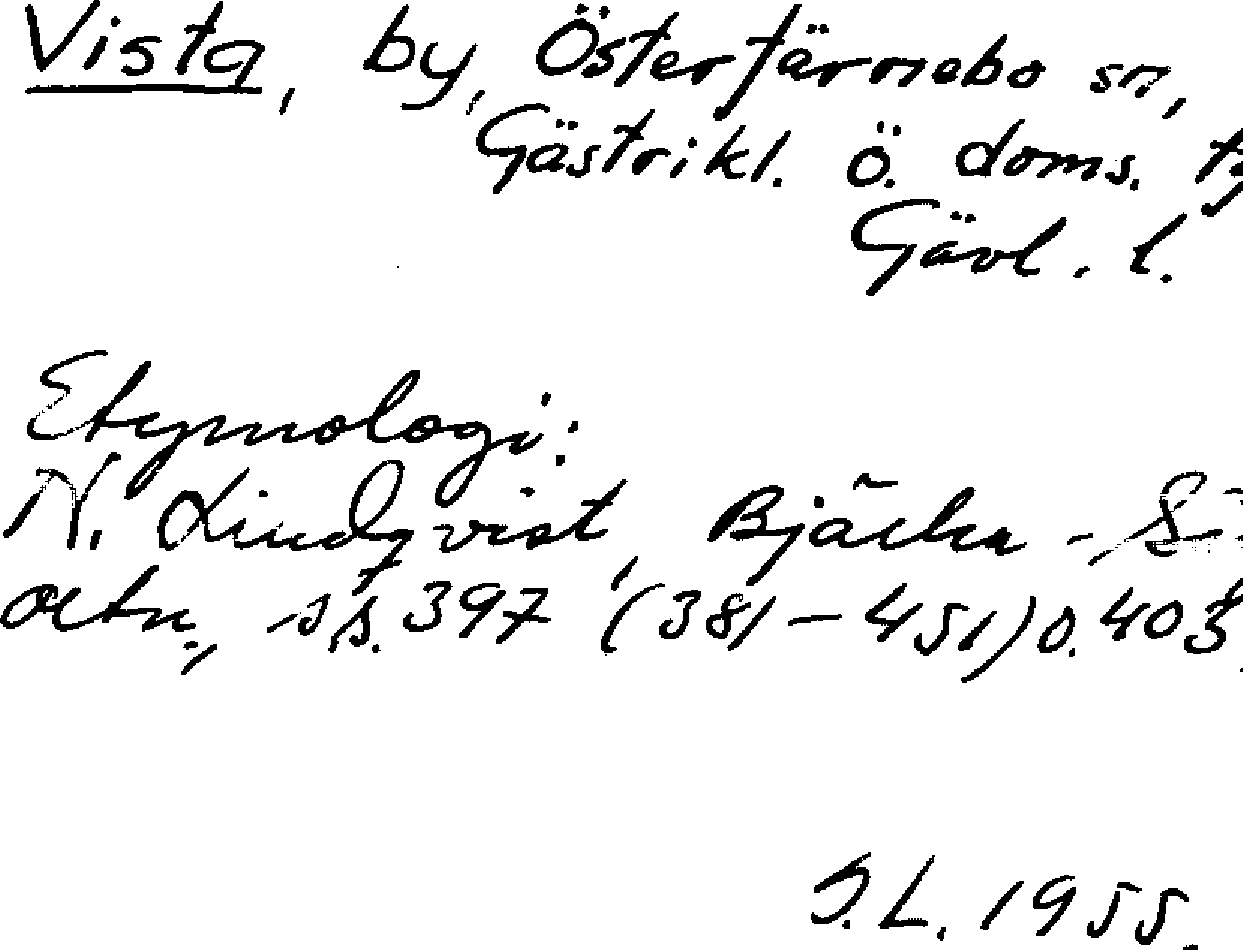 Vista, by, Österfärnebo sn,
Gästrikl. ö. doms.
Gävl. l.
Etymologi:
N. Lindqvist, Bjärka-
octr., s. 397 (381-451) o. 403
S.L. 1955.